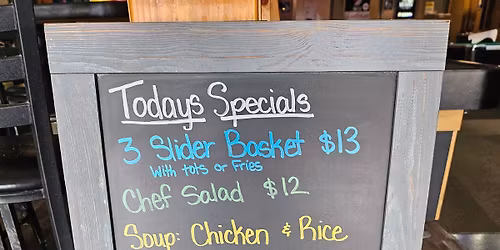 Todays Specials
3 Slider Basket $13
With tots or Fries
Chef Salad $12
Soup: Chicken & Rice